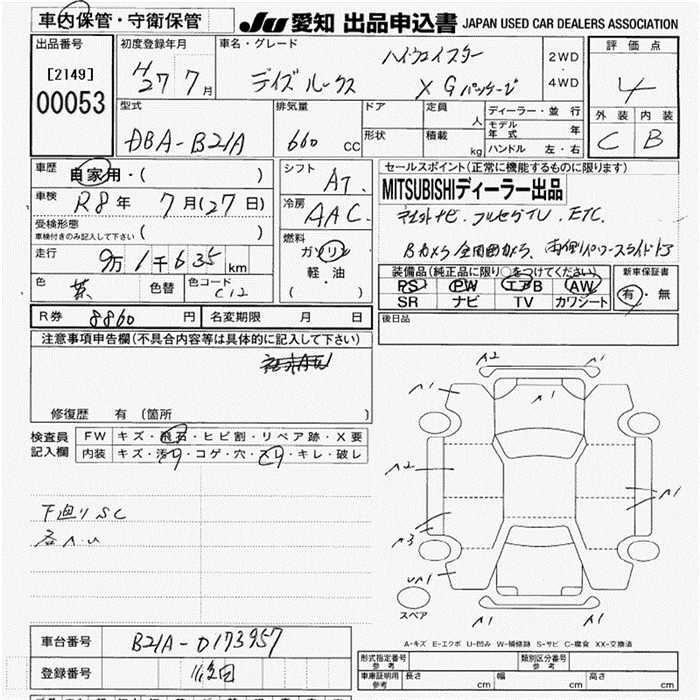 車内保管・守衛保管
JU 愛知 出品申込書 JAPAN USED CAR DEALERS ASSOCIATION
出品番号
[2149]
00053
初度登録年月
H27 7月
車名・グレード
ハイウェイスター
デイズルークス XGパッケージ
2WD
・
4WD
評価点
4
外装 内装
C B
型式
DBA-B21A
排気量
660 CC
ドア
形状
定員
人
積載
kg
ディーラー・並行
モデル年式 年
ハンドル 左・右
車歴
自家用・( )
車検
R8年 7月(27日)
受検形態
車検付きのみ記入して下さい ( )
走行
9万1千635km
色 茶 色替 色コード C12
シフト
AT.
冷房
AAC.
燃料
ガソリン
軽・油
( )
セールスポイント(正常に機能するものに限ります)
MITSUBISHIディーラー出品
ナビ.フルセグTV.ETC.
Bカメラ 全周囲カメラ、両側パワースライドドア
装備品(純正品に限り○をつけてください)
PS PW エアB AW
SR ナビ TV カワシート
新車保証書
有・無
R券 8860円 名変期限 月 日
後日品
注意事項申告欄(不具合内容等は具体的に記入して下さい)
修復歴 有 (箇所 )
検査員
記入欄
FW キズ・飛石・ヒビ割・リペア跡・X要
内装 キズ・汚れ・コゲ・穴・スレ・キレ・破レ
下廻りSC
各A.U
A2
A1
A1
A1
A1
A2
A1
A3
UA1
A1
A1
スペア
A-キズ E-エクボ U-凹み W-補修跡 S-サビ C-腐食 XX-交換済
車台番号 B21A-0173957
登録番号
形式指定番号
参考
類別区分番号
参考
車庫証明用
参考
長さ cm 幅 cm 高さ cm